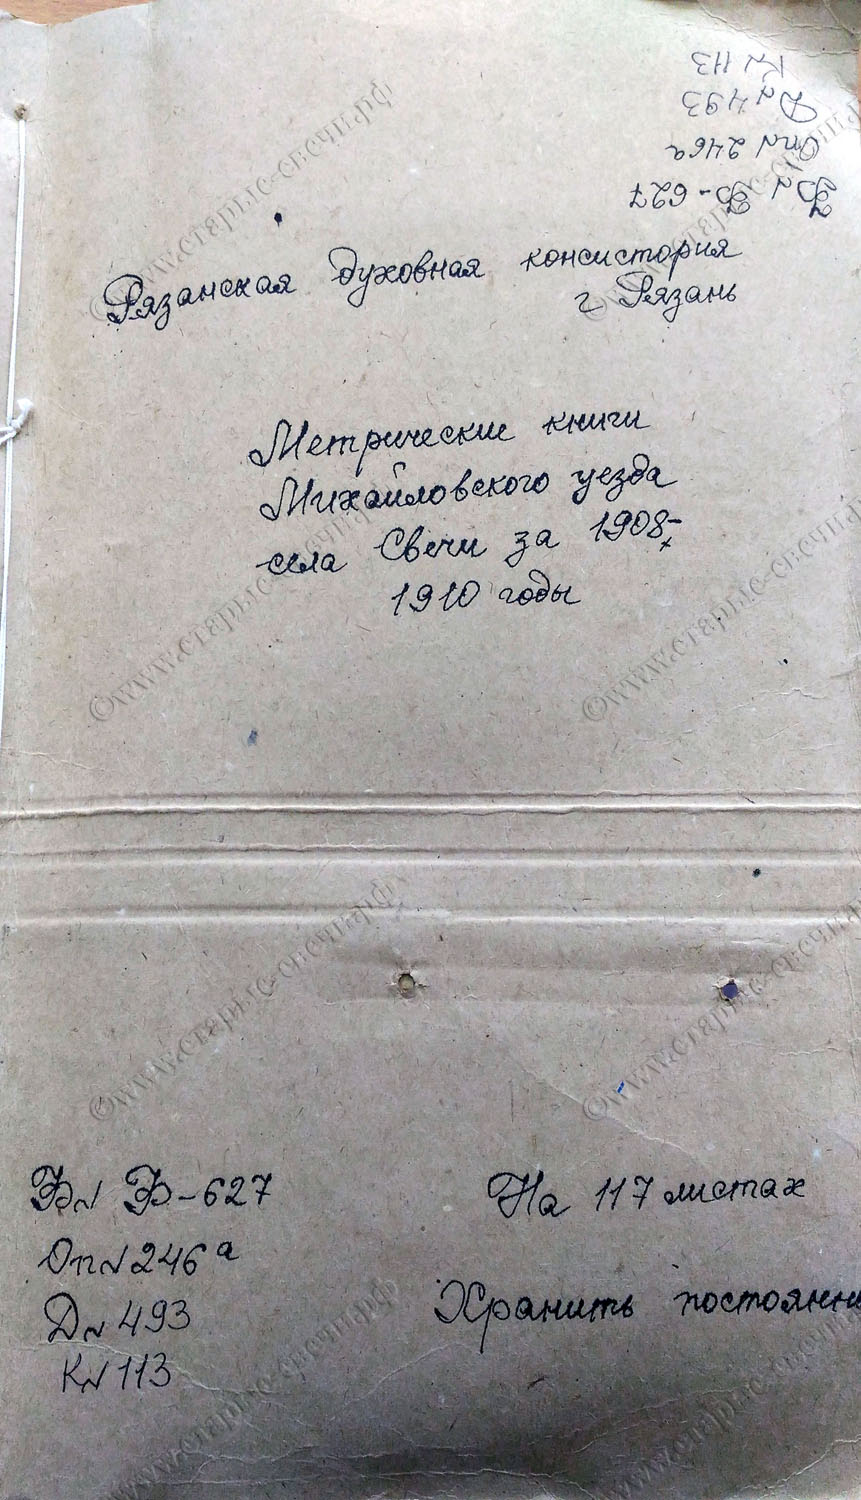 К№ 113
Д№ 493
Оп№ 246а
Ф№ Ф-627
Рязанская духовная консистория
г Рязань
Метрические книги
Михайловского уезда
села Свечи за 1908-
1910 годы
Ф№ Ф-627
Оп№ 246а
Д№ 493
К№ 113
На 117 листах
Хранить постоянн
©www.старые-свечи.рф